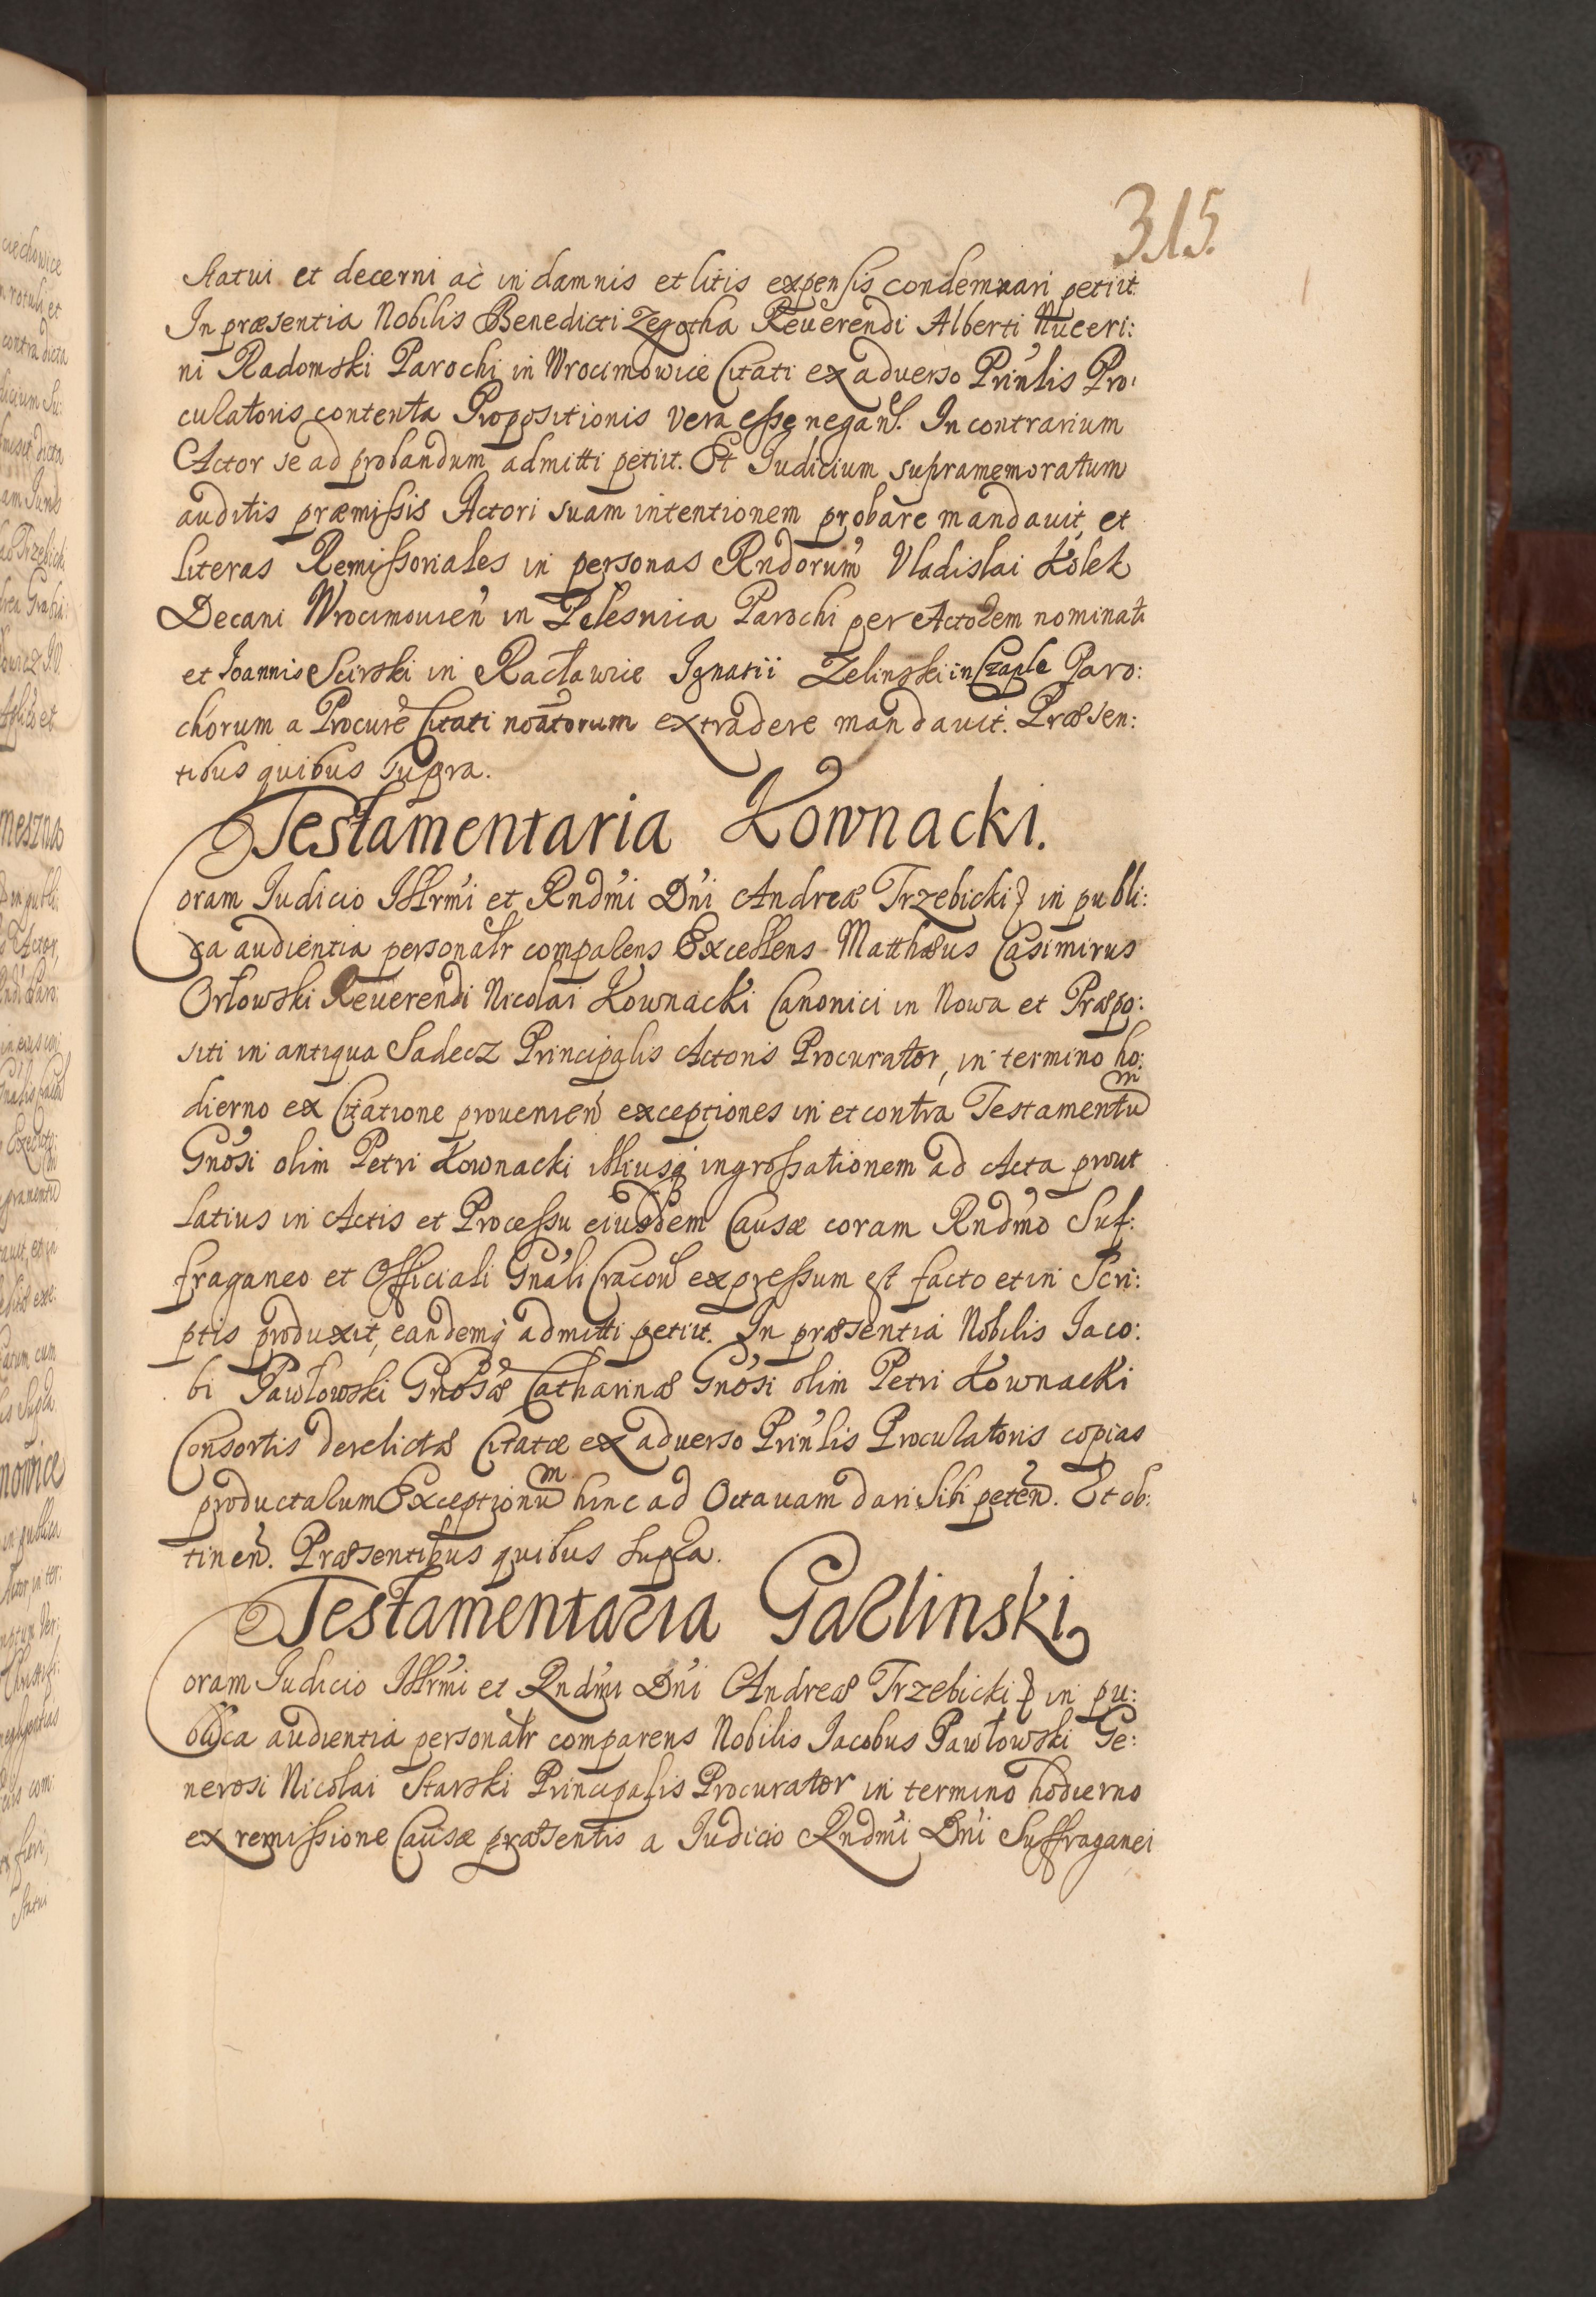 315.
Statui et decerni ac in damnis et litis expensis condemnari petiit.
In præsentia Nobilis Benedicti Zegotha Reuerendi Alberti Nuceri:
ni Radomski Parochi in Wrocimowice Citati ex adverso Prin'lis Pro:
curatoris contenta Propositionis vera esse negan. In contrarium
Actor se ad probandum admitti petiit. Et Iudicium supramemoratum
auditis præmissis Actori suam intentionem probare mandauit, et
literas Remissoriales in personas Rndorum Vladislai Kolek
Decani Wrocimouien in Pelesnica Parochi per Actorem nominati
et Ioannis Scirski in Racławice Ignatii Zelinski in Czaple Paro:
chorum a Procure Citati noatorum extradere mandauit. Præsen:
tibus quibus supra.
Testamentaria Kownacki.
Coram Iudicio Illrmi et Rndmi Dni Andreæ Trzebicki in publi:
ca audientia personalr comparens Excellens Matthæus Casimirus
Orłowski Reuerendi Nicolai Kownacki Canonici in Nowa et Præpo:
siti in antiqua Sadecz Principalis Actoris Procurator, in termino ho:
dierno ex Citatione prouenien exceptiones in et contra Testamentum
Gnosi olim Petri Kownacki illiusq ingrossationem ad Acta prout
latius in Actis et Processu eiusdem Causæ coram Rndmo Suf:
fraganeo et Officiali Gnali Cracou expressum est facto et in Scri:
ptis produxit, eandemq admitti petiit. In præsentia Nobilis Iaco:
bi Pawłowski Gnosæ Catharinæ Gnosi olim Petri Kownacki
Consortis derelictæ Citatæ ex aduerso Prin'lis Procuratoris copias
productarum Exceptionum hinc ad Octauam dari sibi peten. Et ob:
tinen. Præsentibus quibus supra.
Testamentaria Garlinski
Coram Iudicio Illrmi et Rndmi Dni Andreæ Trzebicki in pu:
blica audientia personalr comparens Nobilis Iacobus Pawłowski Ge:
nerosi Nicolai Starski Principalis Procurator in termino hodierno
ex remissione Causæ præsentis a Iudicio Rndmi Dni Suffraganei